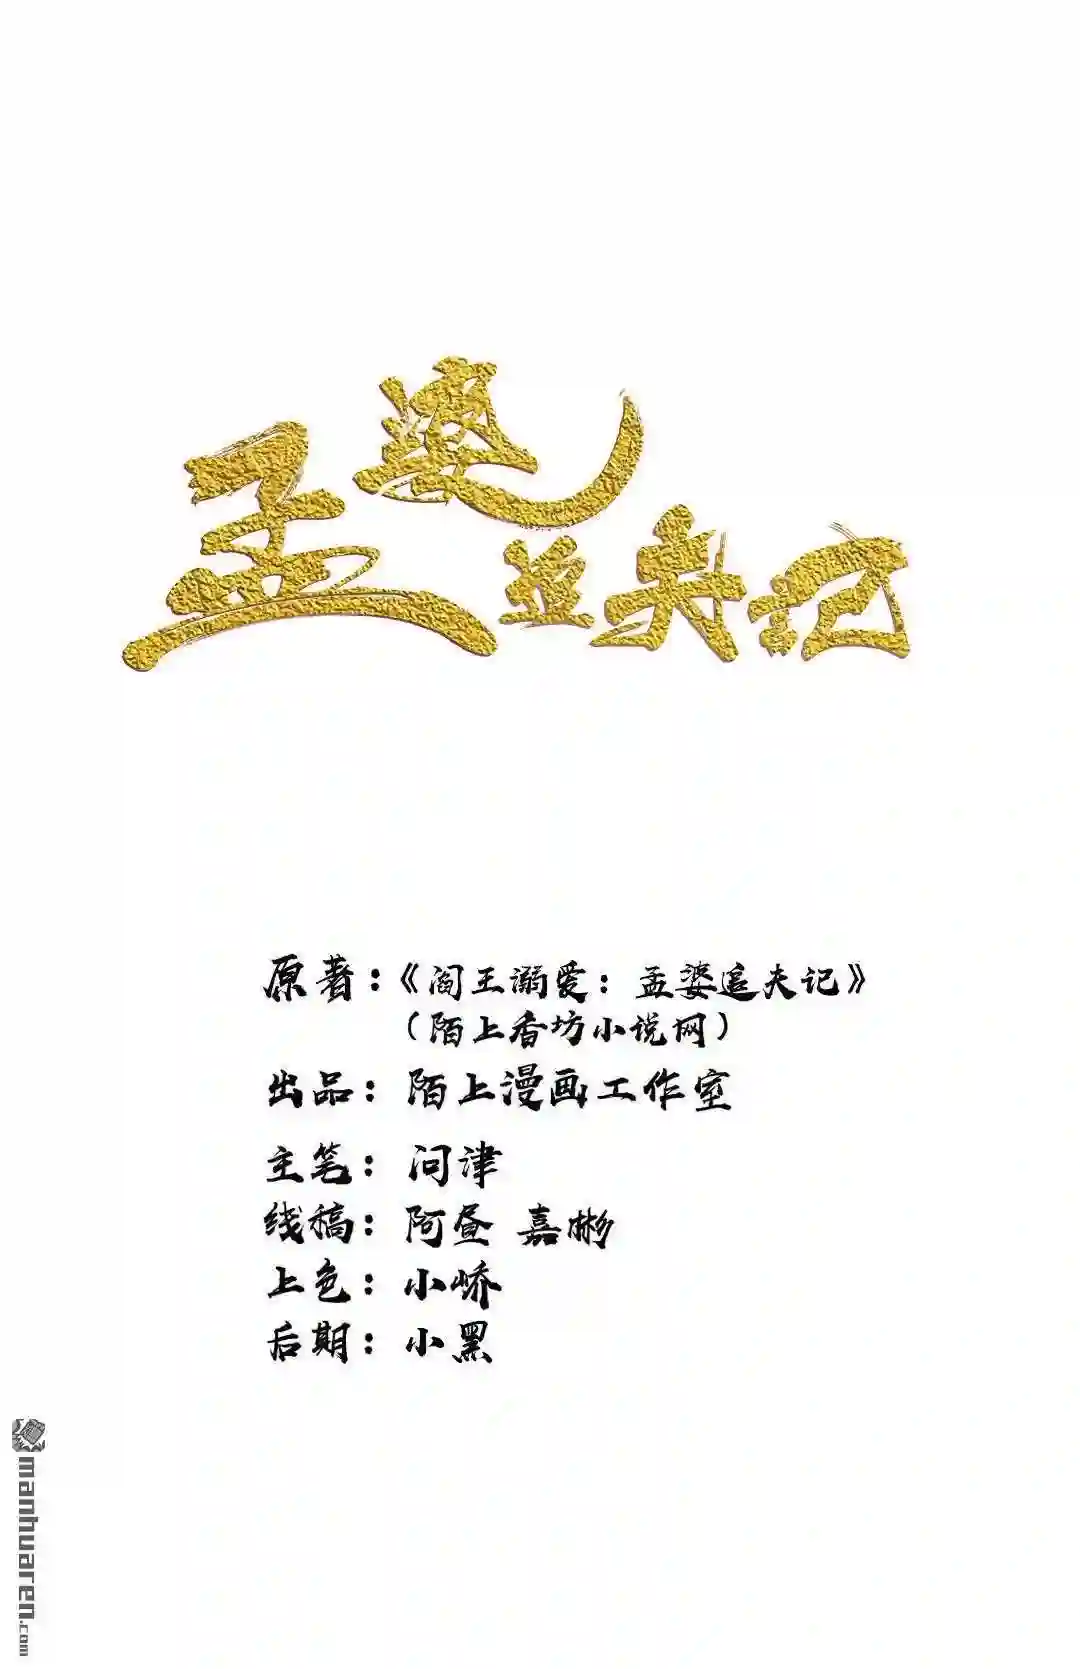 孟婆追夫记
原著：《阎王溺爱：孟婆追夫记》
（陌上香坊小说网）
出品：陌上漫画工作室
主笔：问津
线稿：阿昼 嘉彬
上色：小峤
后期：小黑
manhuaren.com